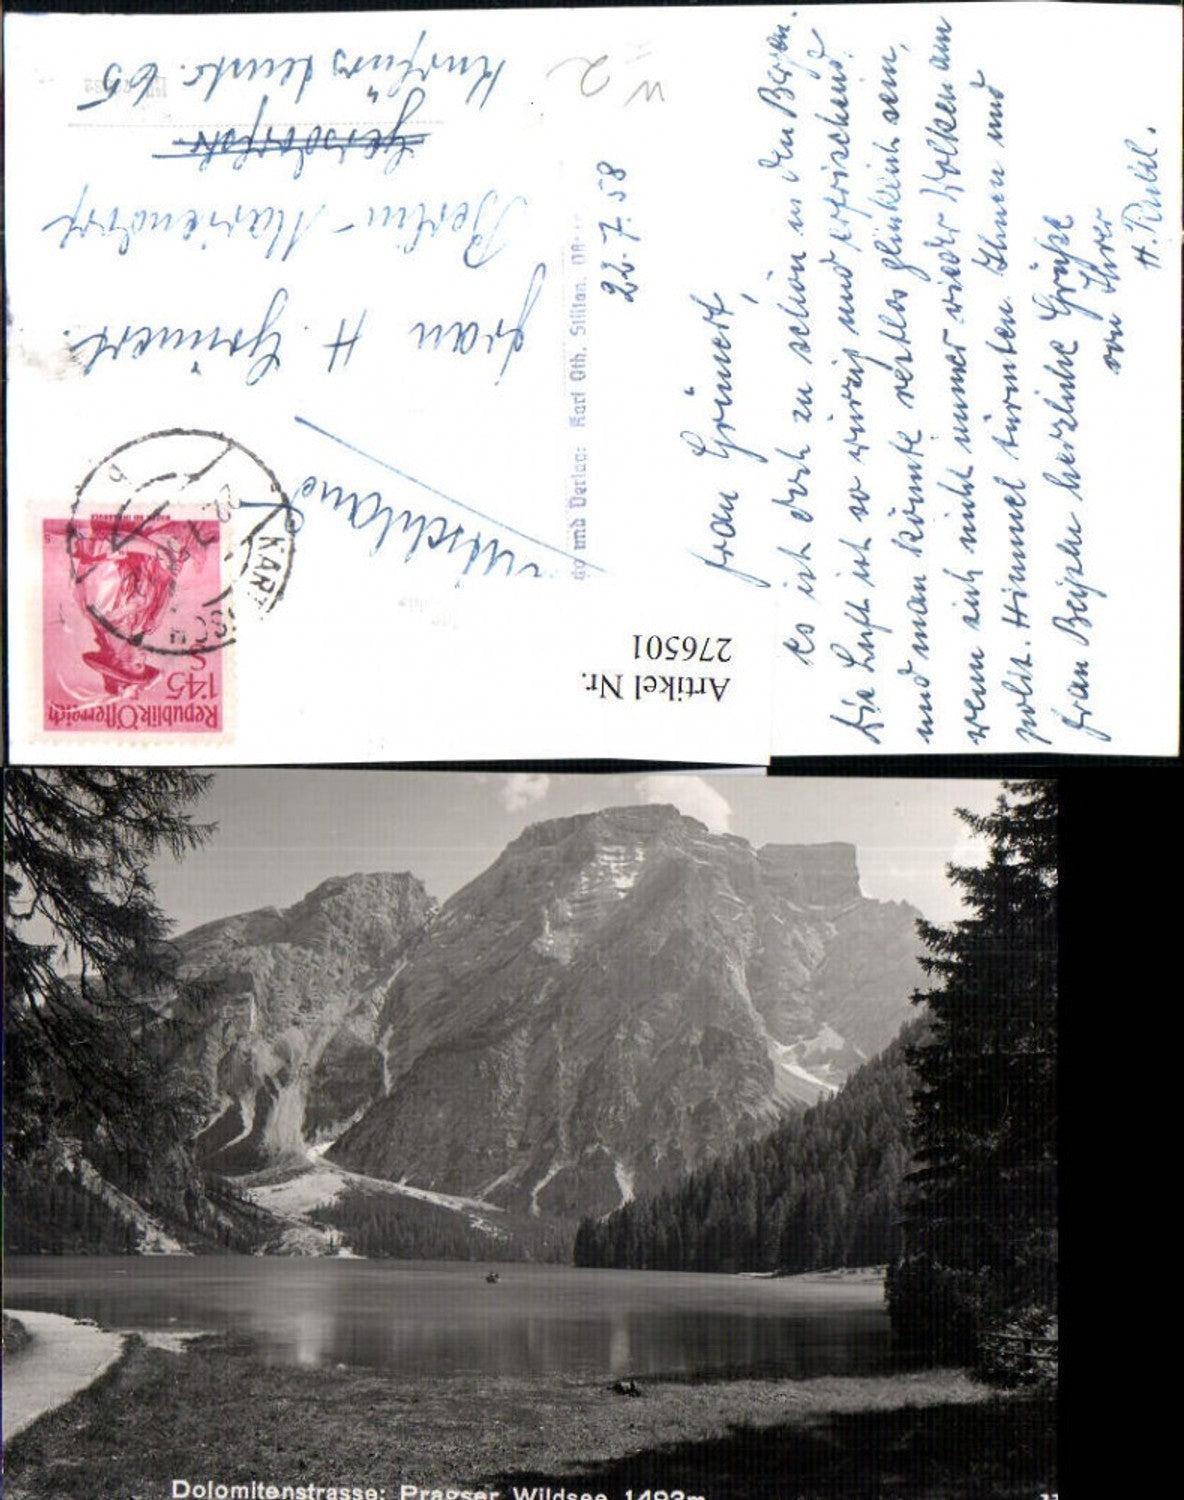 22.7.58
Frau Grünert,
es ist doch zu schön in den Bergen.
Die Luft ist so würzig und erfrischend
und man könnte restlos glücklich sein,
wenn sich nicht immer wieder Wolken am
polit. Himmel türmten. Ihnen und
Frau Beyer herzliche Grüße
von Ihrer
H.
Frau H. Grünert
Berlin-Mariendorf
Kurfürstenstr. 65
Deutschland
und Verlag: Karl Oth, Sillian,
Artikel Nr.
276501
W2
Republik Österreich
S 1'45
22. 7
KART
Dolomitenstrasse: Pragser Wildsee 1493m